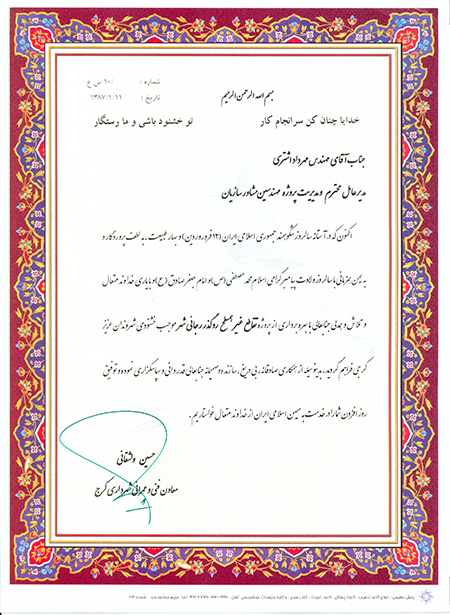 بسم الله الرحمن الرحیم
شماره : /۶۰/ص ع
تاریخ : ۱۳۸۷/۱/۱۱
خدایا چنان کن سرانجام کار تو خشنود باشی و ما رستگار
جناب آقای مهندس مهرداد اشتری
مدیرعامل محترم و مدیریت پروژه مهندسین مشاور سازیان
اکنون که در آستانه سالروز شکوهمند جمهوری اسلامی ایران (۱۲ فروردین) و بهار طبیعت، به لطف پروردگار و
به یمن همزمانی با سالروز ولادت پیامبر گرامی اسلام محمد مصطفی (ص) و امام جعفر صادق (ع) و با یاری خداوند متعال
و تلاش و همدلی جنابعالی با بهره برداری از پروژه تقاطع غیر همسطح روگذر رجائی شهر موجب خشنودی شهروندان عزیز
کرجی فراهم گردید، بدینوسیله از همکاری صادقانه، بی دریغ، سازنده و صمیمانه جنابعالی قدردانی و سپاسگزاری نموده و توفیق
روز افزون شما را در خدمت به میهن اسلامی ایران از خداوند متعال خواستاریم.
حسین وشقانی
معاون فنی و عمرانی شهرداری کرج